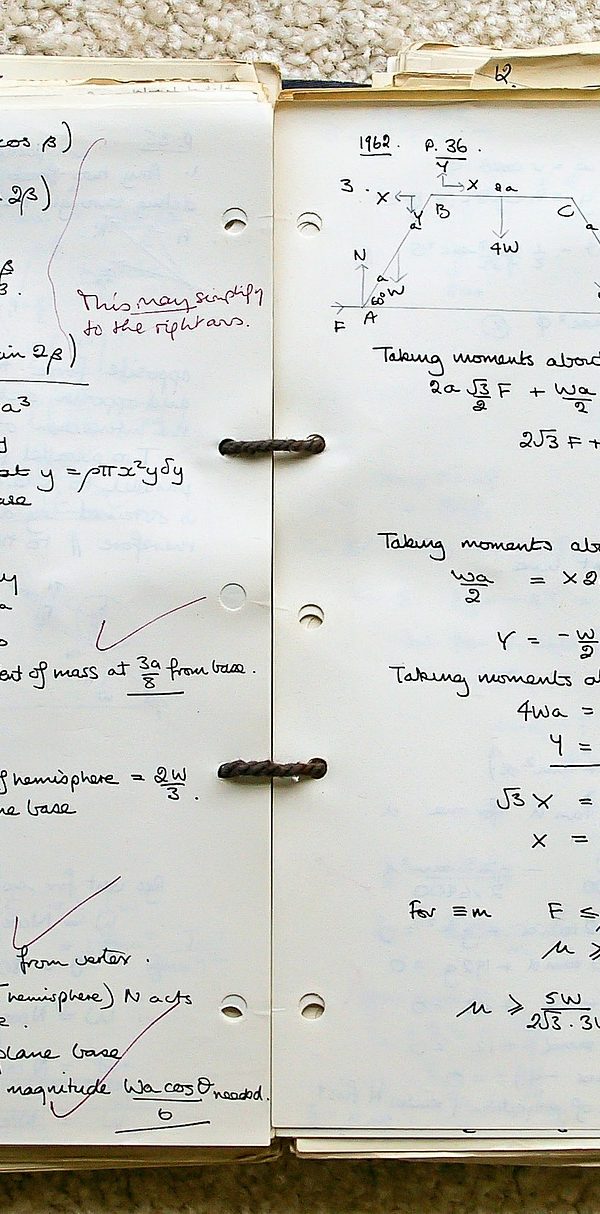 cos β)
2β)
β
3.
This may simplify
to the right ans.
in 2β)
a³
y
at y = ρπx²yδy
ase
y
a
o
ent of mass at 3a/8 from base.
f hemisphere = 2W/3.
ne base
from vertex.
hemisphere) N acts
e.
plane base
magnitude Wa cos θ/6 needed.
12.
1962. P. 36.
Y
3. X X 2a
Y B C
a a
4W
N
a W
60°
F A
Taking moments about
2a √3/2 F + Wa/2
2√3 F +
Taking moments abo
Wa/2 = X 2
Y = -W/2
Taking moments a
4Wa =
Y =
√3 X =
X =
For ≡m F ≤
μ ≥
μ ≥ 5W/2√3.3W